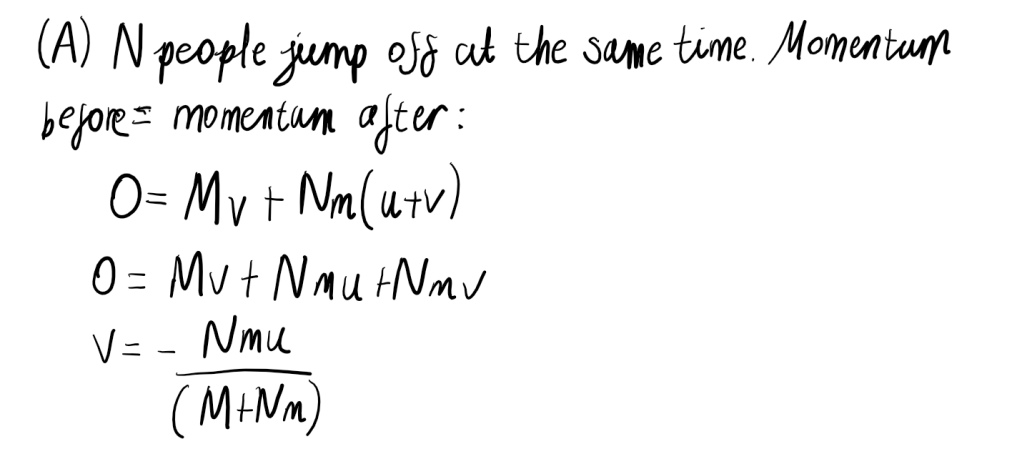 (A) N people jump off at the same time. Momentum
before = momentum after:
0 = Mv + Nm(u+v)
0 = Mv + Nmu + Nmv
v = - Nmu
(M+Nm)